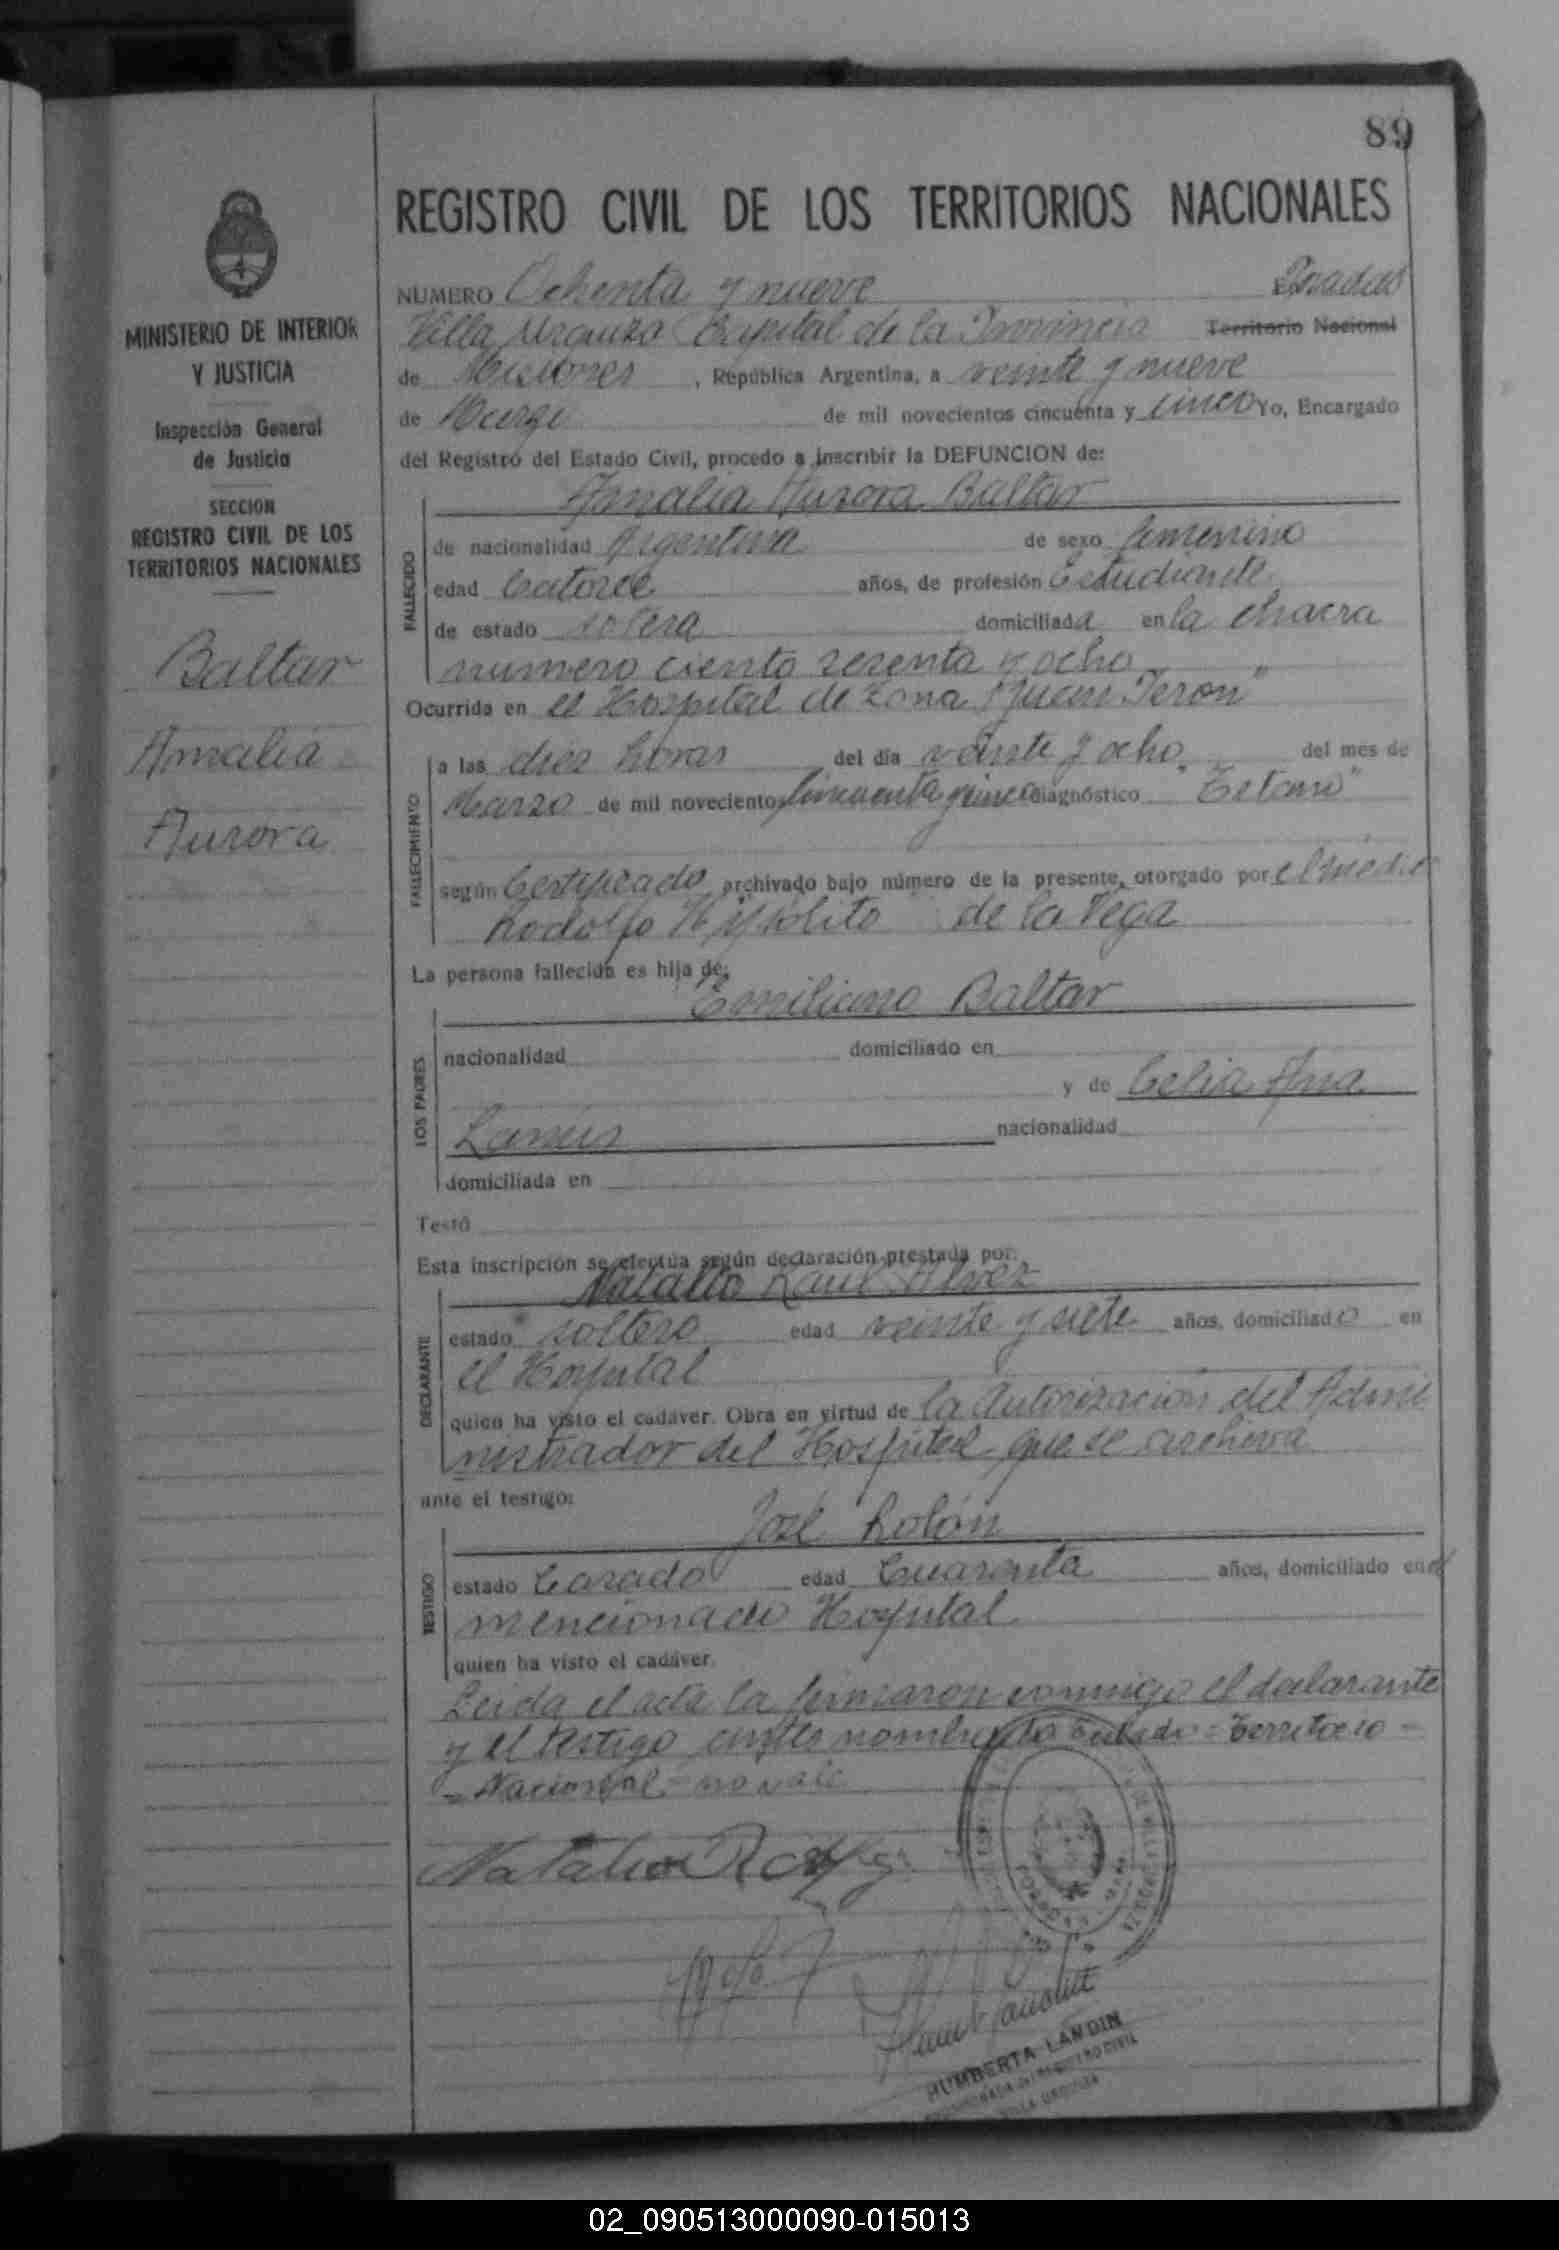 89
REGISTRO CIVIL DE LOS TERRITORIOS NACIONALES
MINISTERIO DE INTERIOR
Y JUSTICIA
Inspección General
de Justicia
SECCION
REGISTRO CIVIL DE LOS
TERRITORIOS NACIONALES
Baltar
Amalia
Aurora
NUMERO Ochenta y nueve Posadas
Villa Urquiza Capital de la Provincia Territorio Nacional
de Misiones, República Argentina, a veinte y nueve
de Marzo de mil novecientos cincuenta y cinco Yo, Encargado
del Registro del Estado Civil, procedo a inscribir la DEFUNCION de:
Amalia Aurora Baltar
FALLECIDO
de nacionalidad Argentina de sexo femenino
edad Catorce años, de profesión Estudiante
de estado soltera domiciliada en la chacra
numero ciento sesenta y ocho
Ocurrida en el Hospital de Zona "Juan Peron"
FALLECIMIENTO
a las diez horas del día veinte y ocho del mes de
Marzo de mil novecientos cincuenta y cinco diagnóstico "Tetano"
según Certificado archivado bajo número de la presente, otorgado por el médico
Rodolfo Hipólito de la Vega
La persona fallecida es hija de:
Emiliano Baltar
LOS PADRES
nacionalidad domiciliado en
y de Celia Ana
Lanús nacionalidad
domiciliada en
Testó
Esta inscripción se efectúa según declaración prestada por:
Natalio Raul Alvez
DECLARANTE
estado soltero edad veinte y siete años, domiciliado en
el Hospital
quien ha visto el cadáver. Obra en virtud de la Autorización del Admi
nistrador del Hospital que se archiva
ante el testigo:
José Rolón
TESTIGO
estado Casado edad Cuarenta años, domiciliado en el
mencionado Hospital
quien ha visto el cadáver.
Leida el acta la firmaron conmigo el declarante
y el testigo antes nombrado = Territorio =
= Nacional = no vale
Natalio R
HUMBERTA LANDIN
ENCARGADA del REGISTRO CIVIL
VILLA URQUIZA
02_090513000090-015013